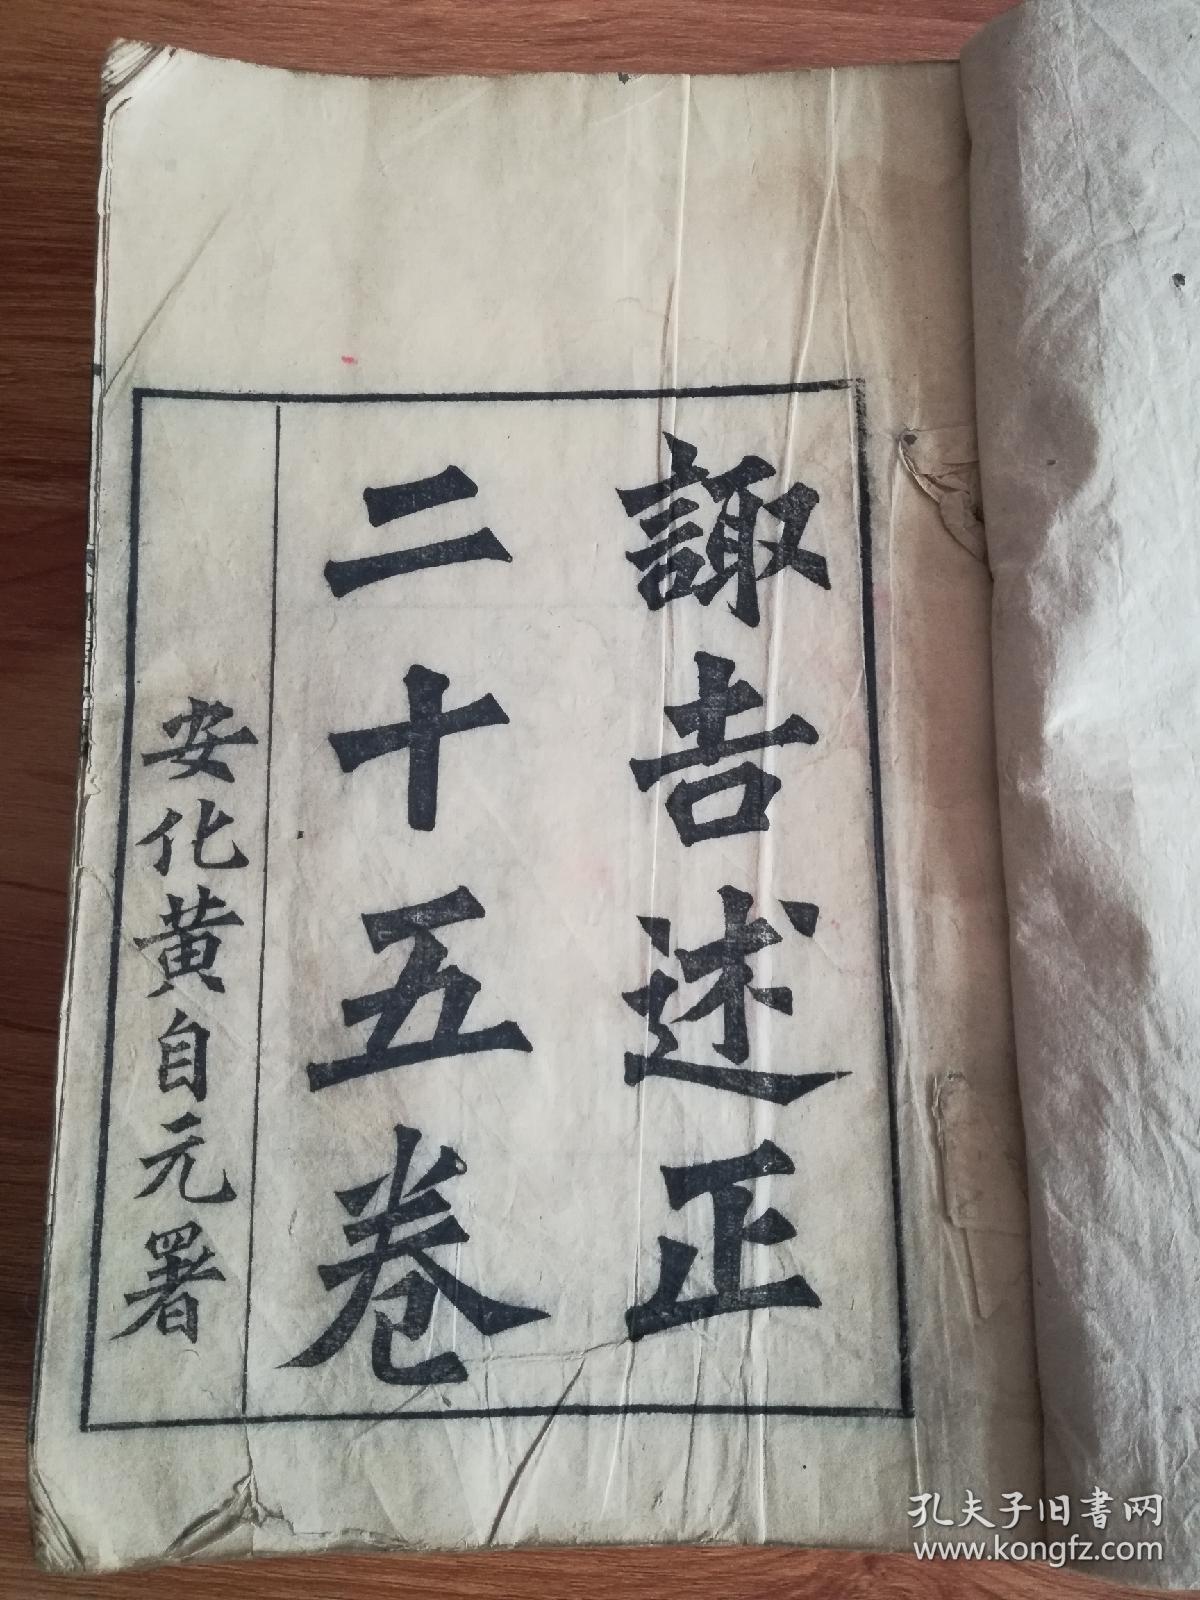 諏吉述正
二十五卷
安化黄自元署
孔夫子旧書网
www.kongfz.com